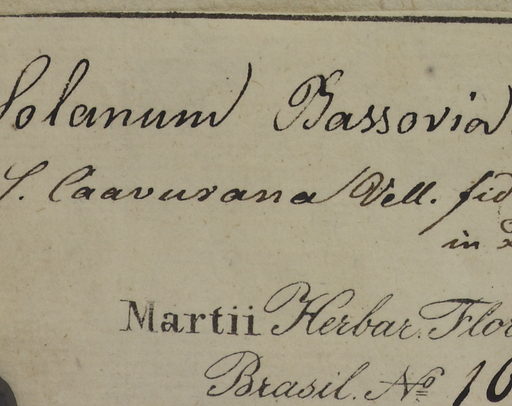 Solanum Bassovia
S. Caavurana Vell. fid
in
Martii Herbar. Flor
Brasil. No 10